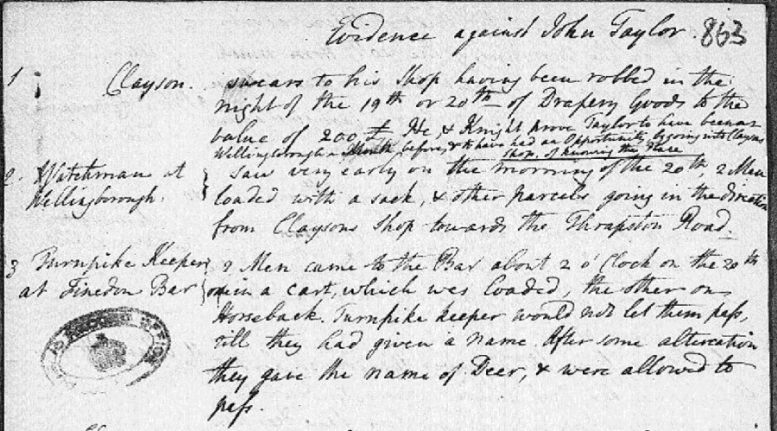 Evidence against John Taylor. 863
1 Clayson. swears to his Shop having been robbed in the
night of the 19th or 20th of Drapery Goods to the
value of 200 £. He & Knight prove Taylor to have been at
Wellingborough a Month before, & to have had an Opportunity, by going into Claysons
Shop, of knowing the Place
2. Watchman at saw very early on the morning of the 20th, 2 Men
Wellingborough. loaded with a sack, & other parcels going in the direction
from Claysons Shop towards the Thrapston Road.
3 Turnpike Keeper 2 Men came to the Bar about 2 o'Clock on the 20th
at Finedon Bar one in a cart, which was loaded, the other on
Horseback. Turnpike keeper would not let them pass,
till they had given a name. After some altercation
they gave the name of Deer, & were allowed to
pass.